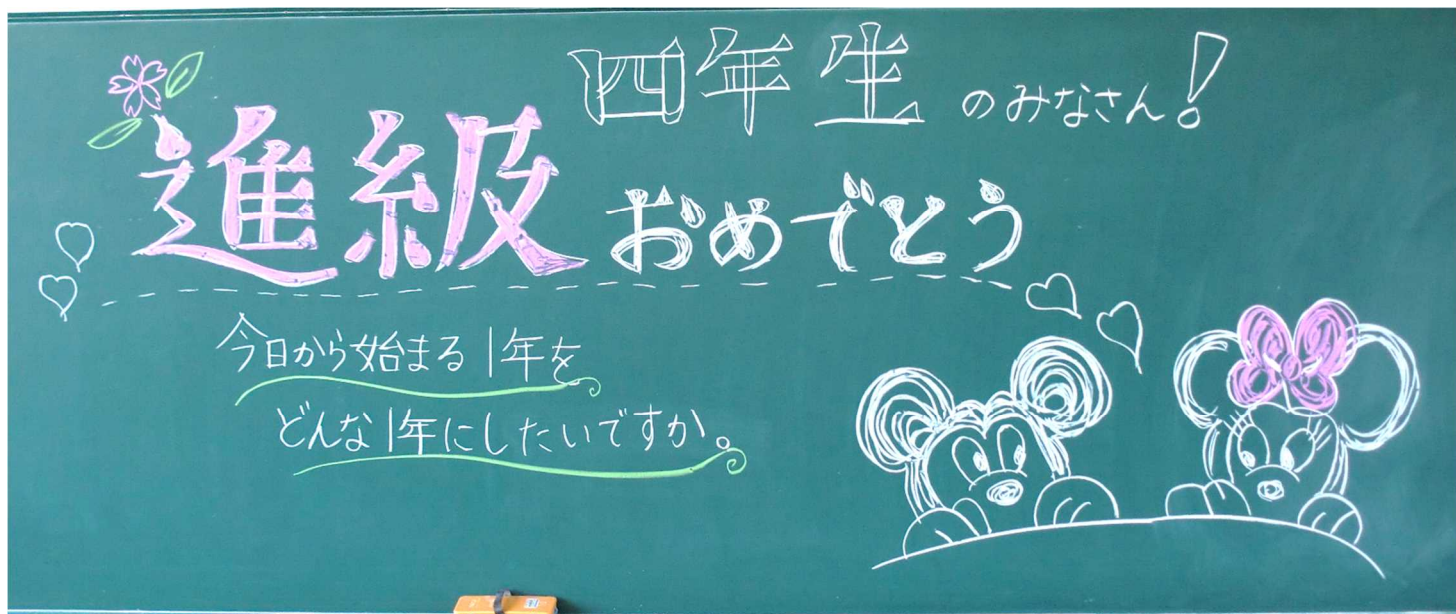 四年生のみなさん!
進級おめでとう
今日から始まる1年を
どんな1年にしたいですか。